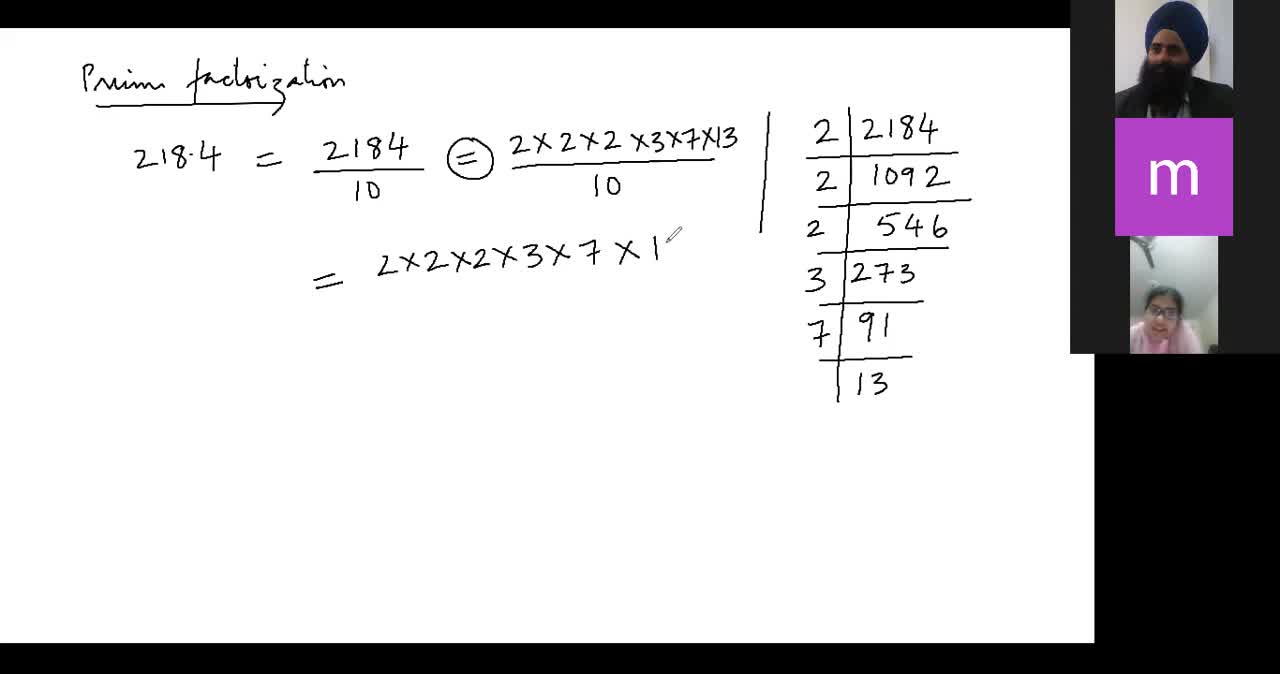 Prime factorization
218.4 = 2184/10 = 2×2×2×3×7×13/10
= 2×2×2×3×7×1
2 | 2184
2 | 1092
2 | 546
3 | 273
7 | 91
| 13
m